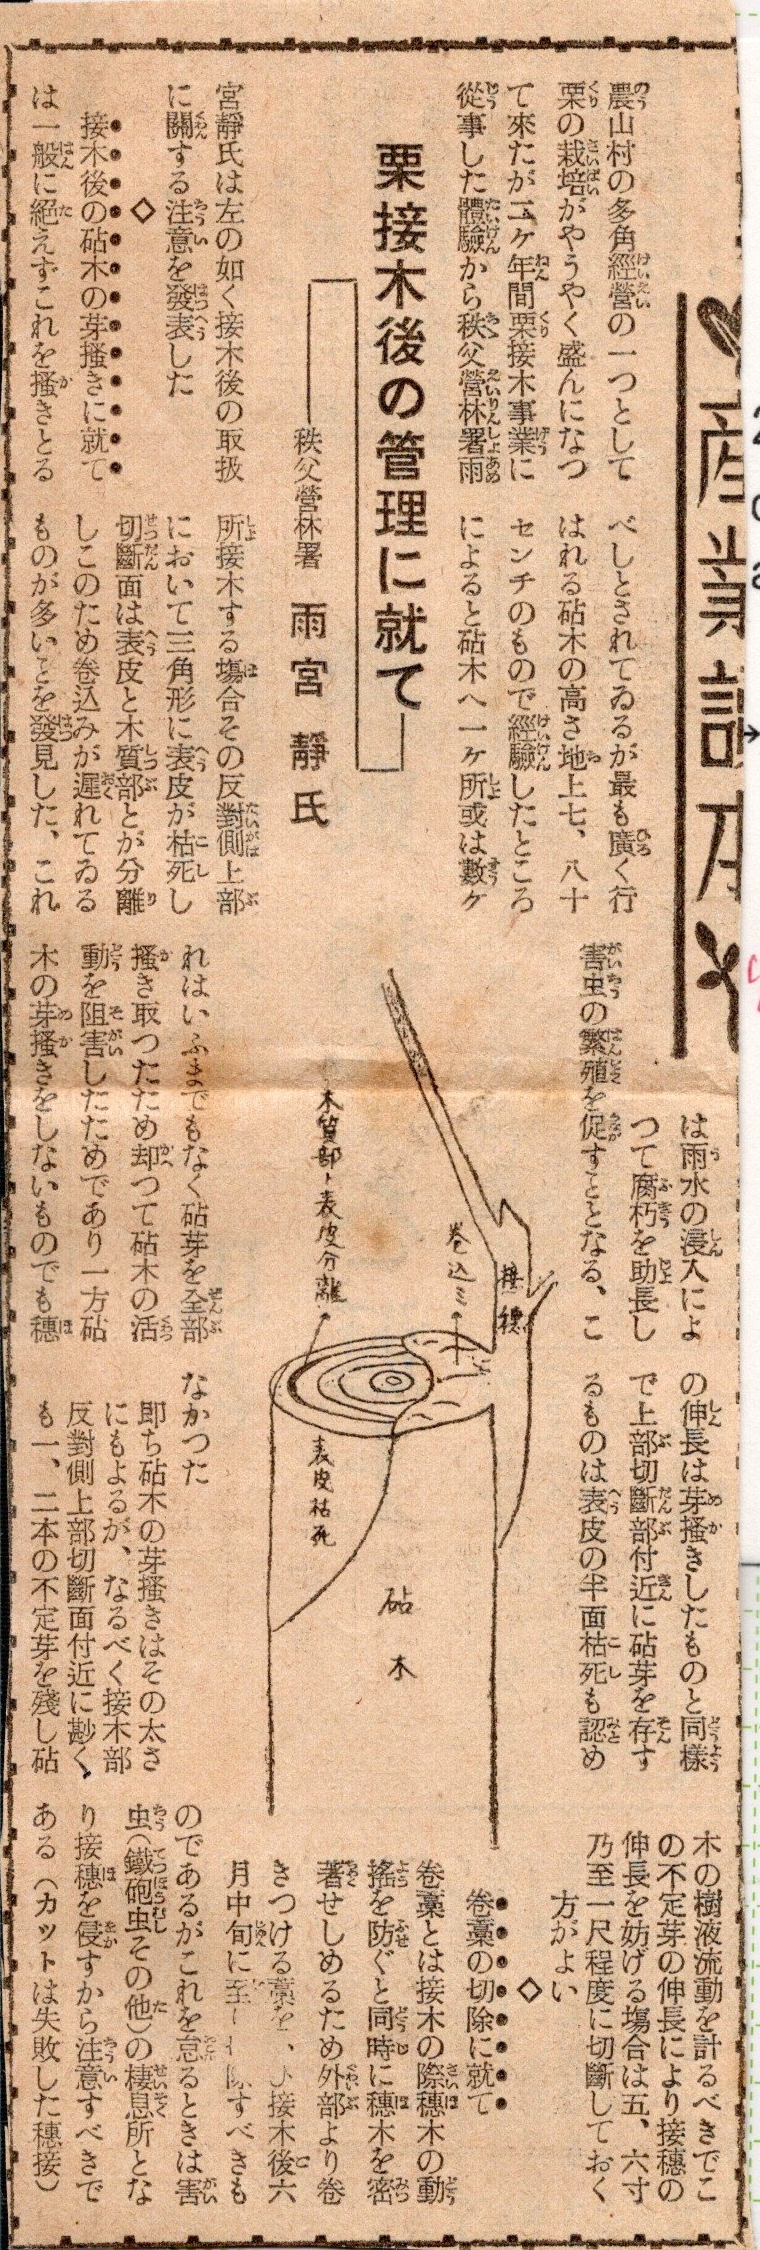 産業
栗接木後の管理に就て
秩父營林署　雨宮　靜氏
農山村の多角經營の一つとして
栗の栽培がやうやく盛んになつ
て來たがケ年間栗接木事業に
從事した體驗から秩父營林署雨
宮靜氏は左の如く接木後の取扱
に關する注意を發表した
◇
接木後の砧木の芽掻きに就て
は一般に絶えずこれを掻きとる
べしとされてゐるが最も廣く行
はれる砧木の高さ地上七、八十
センチのもので經驗したところ
によると砧木へ一ケ所或は數ケ
所接木する塲合その反對側上部
において三角形に表皮が枯死し
切斷面は表皮と木質部とが分離
しこのため卷込みが遲れてゐる
ものが多いことを發見した、これ
は雨水の浸入によ
つて腐朽を助長し
害虫の繁殖を促すこととなる、こ
れはいふまでもなく砧芽を全部
掻き取つたため却つて砧木の活
動を阻害したためであり一方砧
木の芽掻きをしないものでも穗
の伸長は芽掻きしたものと同樣
で上部切斷部付近に砧芽を存す
るものは表皮の半面枯死も認め
なかつた
即ち砧木の芽掻きはその太さ
にもよるが、なるべく接木部
反對側上部切斷面付近に尠く
も一、二本の不定芽を殘し砧
木の樹液流動を計るべきでこ
の不定芽の伸長により接穗の
伸長を妨げる塲合は五、六寸
乃至一尺程度に切斷しておく
方がよい
◇
卷藁の切除に就て
卷藁とは接木の際穗木の動
搖を防ぐと同時に穗木を密
著せしめるため外部より卷
きつける藁を、接木後六
月中旬に至すべきも
のであるがこれを怠るときは害
虫（鐵砲虫その他）の棲息所とな
り接穗を侵すから注意すべきで
ある（カットは失敗した穗接）
接穗
卷込ミ
木質部ト表皮分離
表皮枯死
砧木